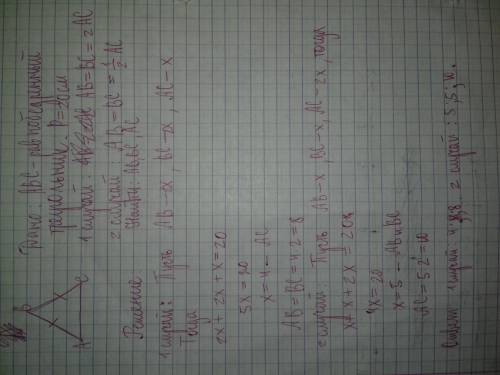 B
A
C
Дано: ABC - равнобедренный
треугольник. P=20см
1 случай: AB=BC=2AC
2 случай: AB=BC=½AC
Найти: AB, BC, AC
Решение
1 случай: Пусть AB-2x, BC-2x, AC-x
Тогда
2x+2x+x=20
5x=20
x=4 - AC
AB=BC=4·2=8
2 случай Пусть AB-x, BC-x, AC-2x, тогда
x+x+2x=20
4x=20
x=5 - AB и BC
AC=5·2=10
Ответ: 1 случай 4,8,8 2 случай: 5;5;10.